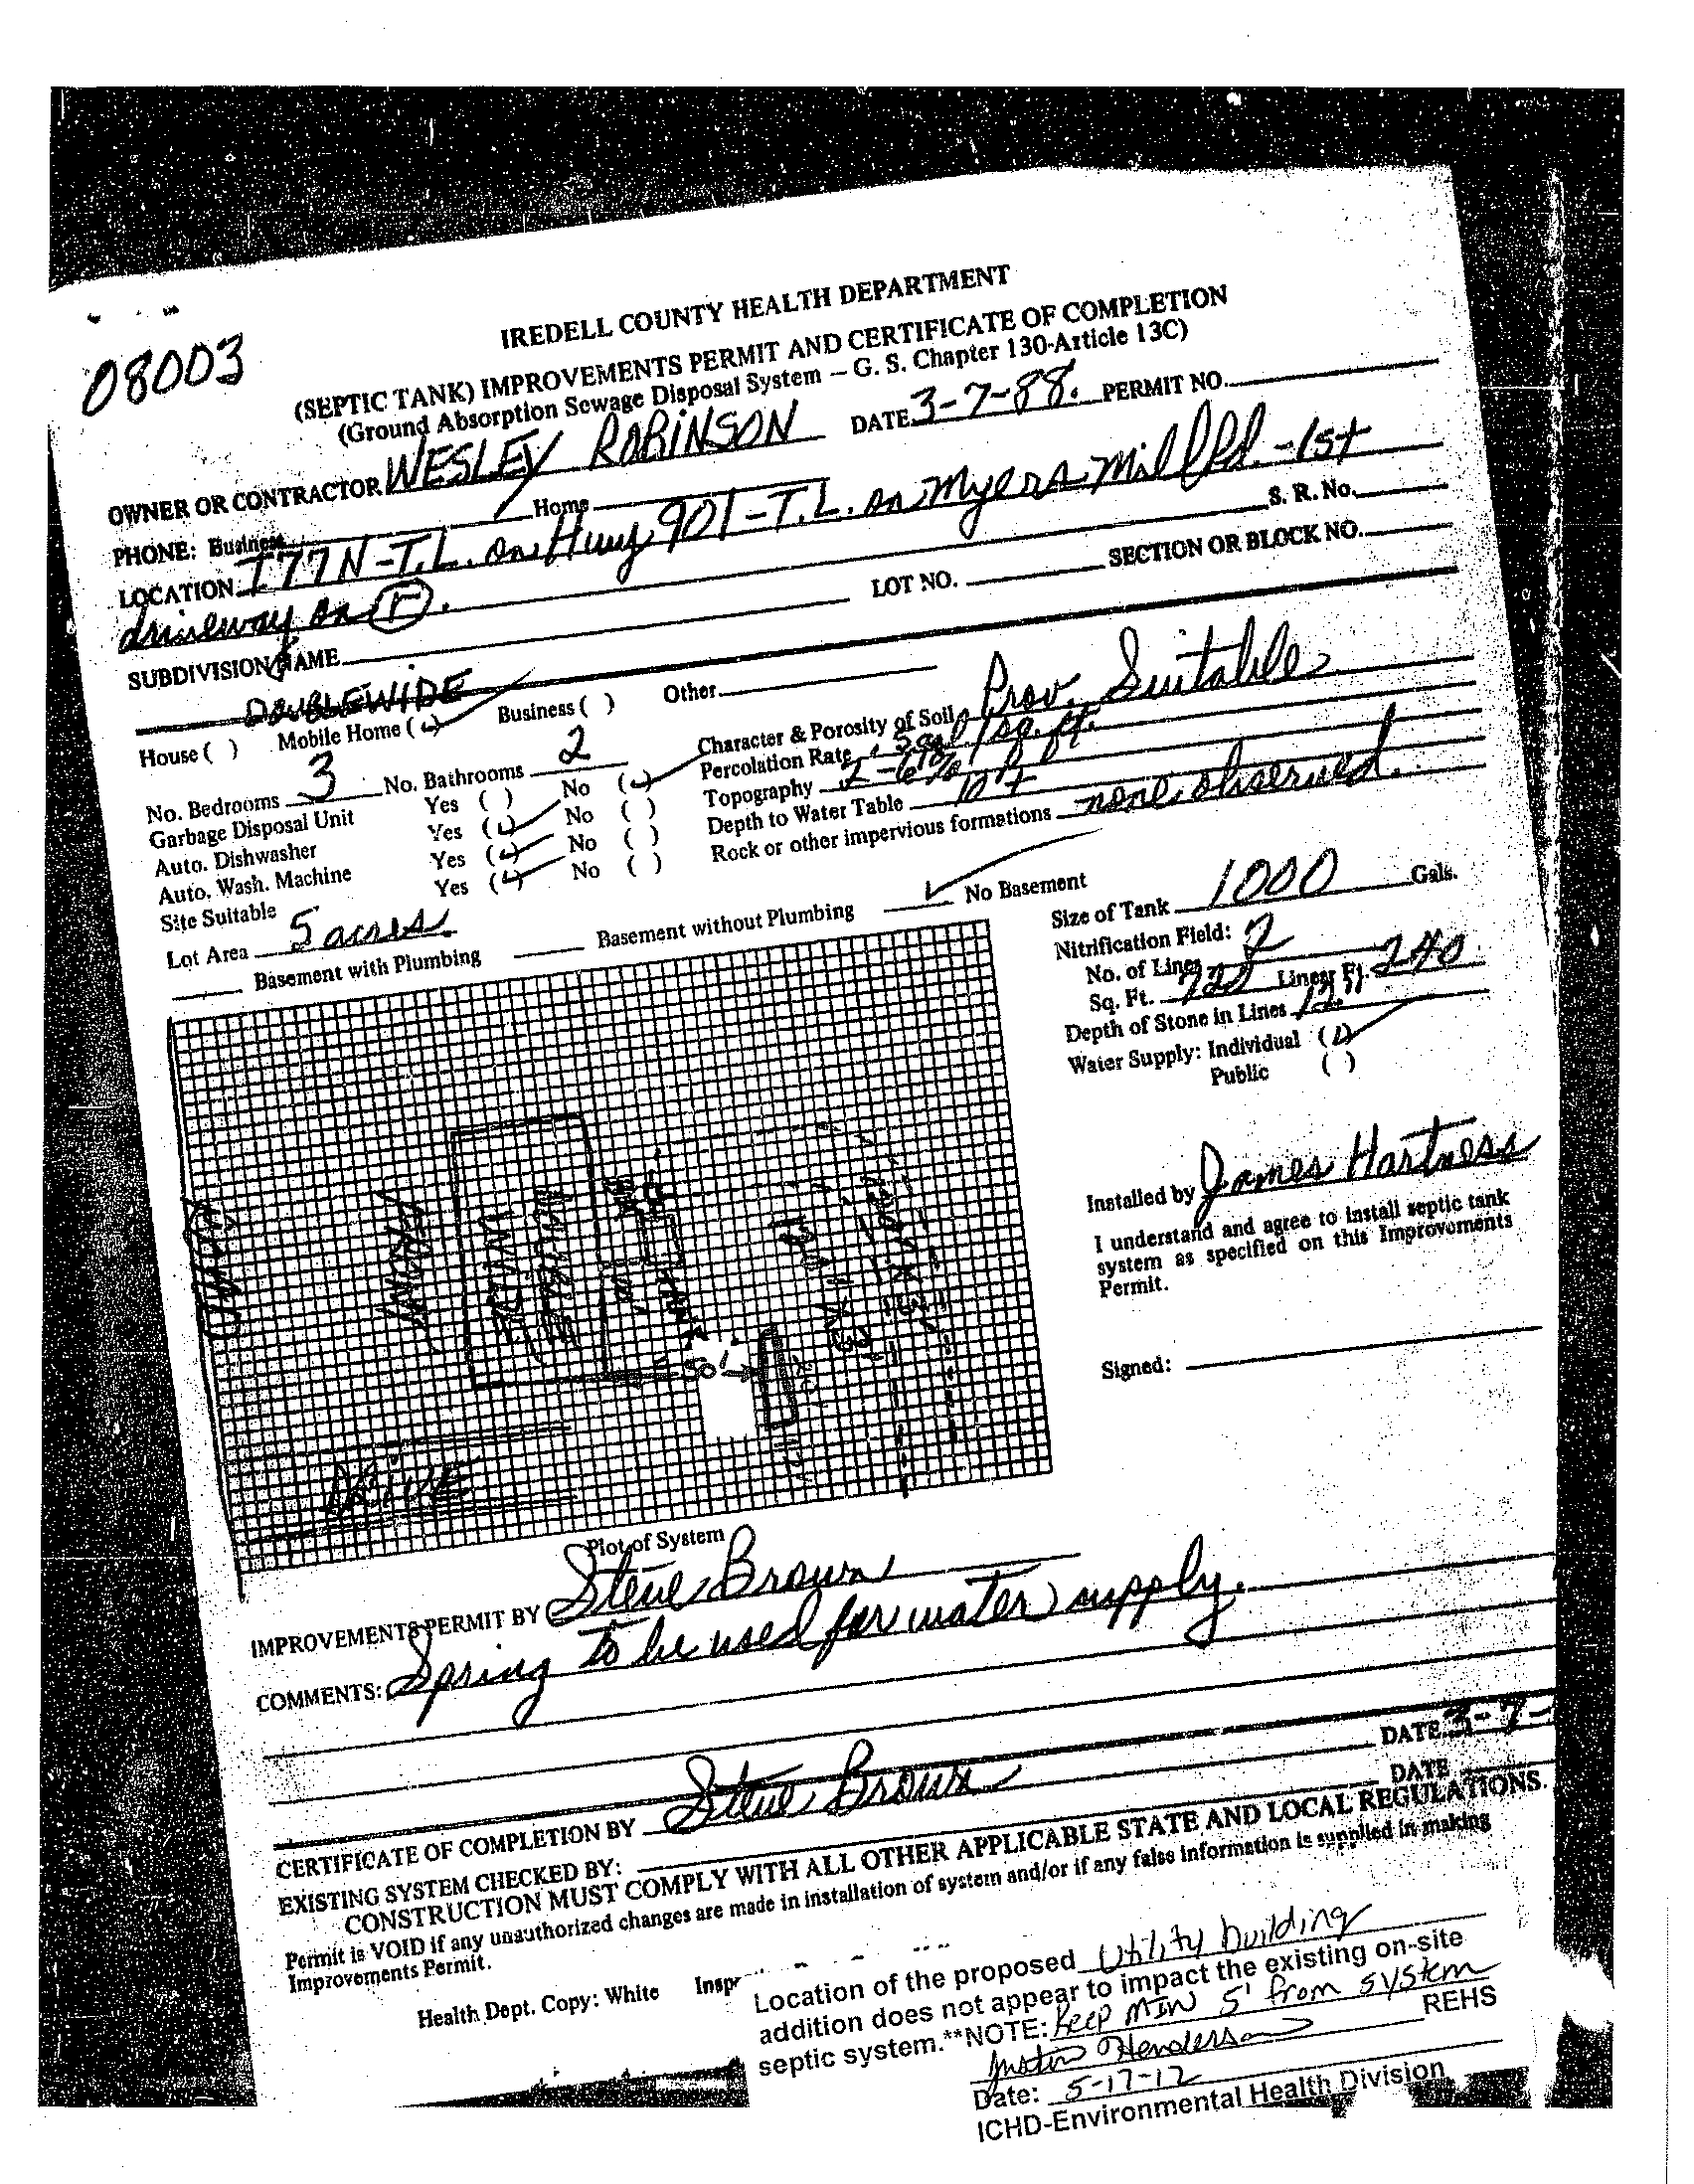 08003
IREDELL COUNTY HEALTH DEPARTMENT
(SEPTIC TANK) IMPROVEMENTS PERMIT AND CERTIFICATE OF COMPLETION
(Ground Absorption Sewage Disposal System – G. S. Chapter 130-Article 13C)
OWNER OR CONTRACTOR WESLEY ROBINSON DATE 3-7-88. PERMIT NO.
PHONE: Business Home
LOCATION I 77 N - T.L. on Hwy 901 - T.L. on Myers Mill Rd. - 1st
S. R. No.
driveway on r.
SUBDIVISION NAME LOT NO. SECTION OR BLOCK NO.
DOUBLEWIDE
House ( ) Mobile Home (✓) Business ( ) Other
No. Bedrooms 3 No. Bathrooms 2
Garbage Disposal Unit Yes ( ) No (✓)
Auto. Dishwasher Yes (✓) No ( )
Auto. Wash. Machine Yes (✓) No ( )
Site Suitable Yes (✓) No ( )
Lot Area 5 acres
Character & Porosity of Soil Prov. Suitable
Percolation Rate sq. ft.
Topography 2-6%
Depth to Water Table 10 +
Rock or other impervious formations none observed.
Basement with Plumbing Basement without Plumbing ✓ No Basement
Size of Tank 1000 Gals.
Nitrification Field:
No. of Lines 2
Sq. Ft. 720 Linear Ft. 240
Depth of Stone in Lines 12"
Water Supply: Individual (✓)
Public ( )
FRONT
DOUBLE
WIDE
50'
DRIVE
Installed by James Hartness
I understand and agree to install septic tank
system as specified on this Improvements
Permit.
Signed:
Plot of System
IMPROVEMENTS PERMIT BY Steve Brown
COMMENTS: Spring to be used for water supply.
CERTIFICATE OF COMPLETION BY Steve Brown DATE 3-7-
EXISTING SYSTEM CHECKED BY: DATE
CONSTRUCTION MUST COMPLY WITH ALL OTHER APPLICABLE STATE AND LOCAL REGULATIONS.
Permit is VOID if any unauthorized changes are made in installation of system and/or if any false information is supplied in making
Improvements Permit.
Health Dept. Copy: White Insp
Location of the proposed Utility building
addition does not appear to impact the existing on-site
septic system. **NOTE: Keep MIN 5' from system
Justin Henderson REHS
Date: 5-17-12
ICHD-Environmental Health Division